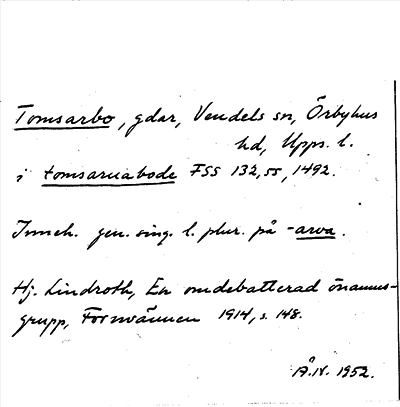 Tomsarbo, gdar, Vendels sn, Örbyhus
hd, Upps. l.
i tomsaruabode FSS 132,55, 1492.
Inneh. gen. sing. l. plur. på -arva.
Hj. Lindroth, En omdebatterad önamns-
grupp, Fornvännen 1914, s. 148.
1952.